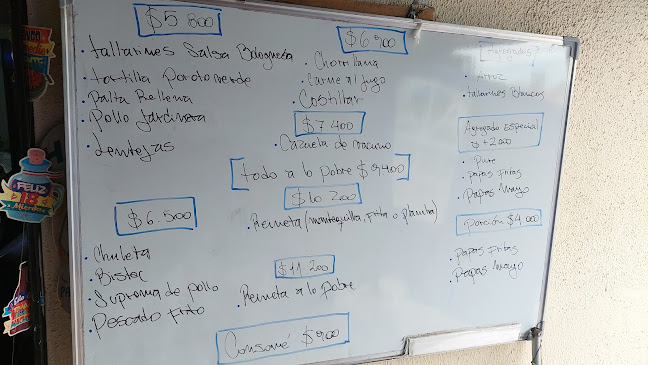 $5 800
• tallarines Salsa Bolognesa
• tortilla Poroto verde
• Palta Rellena
• Pollo Jardinera
• Lentejas
$6.500
• Chuleta
• Bistec
• Suprema de pollo
• Pescado Frito
• Chorrillana
• Carne al jugo
• Costillar
$7 400
• Cazuela de vacuno
todo a lo pobre $9400
$10 200
• Reineta (mantequilla, frita o plancha)
$11 200
• Reineta a lo pobre
Consomé $900
Agregados
• Arroz
• tallarines Blancos
Agregado Especial
$ +2.000
• Pure
• Papas Fritas
• Papas Mayo
Porción $4.000
• Papas Fritas
• Papas Mayo
¡FELIZ
18